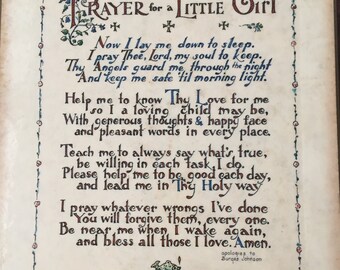 PRAYER for a LITTLE GIRL
Now I lay me down to sleep,
I pray Thee, Lord, my soul to keep.
Thy Angels guard me through the night
And keep me safe 'til morning light.
Help me to know Thy Love for me
so I a loving child may be,
With generous thoughts & happy face
and pleasant words in every place.
Teach me to always say what's true,
be willing in each task I do.
Please help me to be good each day,
and lead me in Thy Holy way.
I pray whatever wrongs I've done
You will forgive them, every one.
Be near me when I wake again,
and bless all those I love. Amen.
apologies to
Burges Johnson